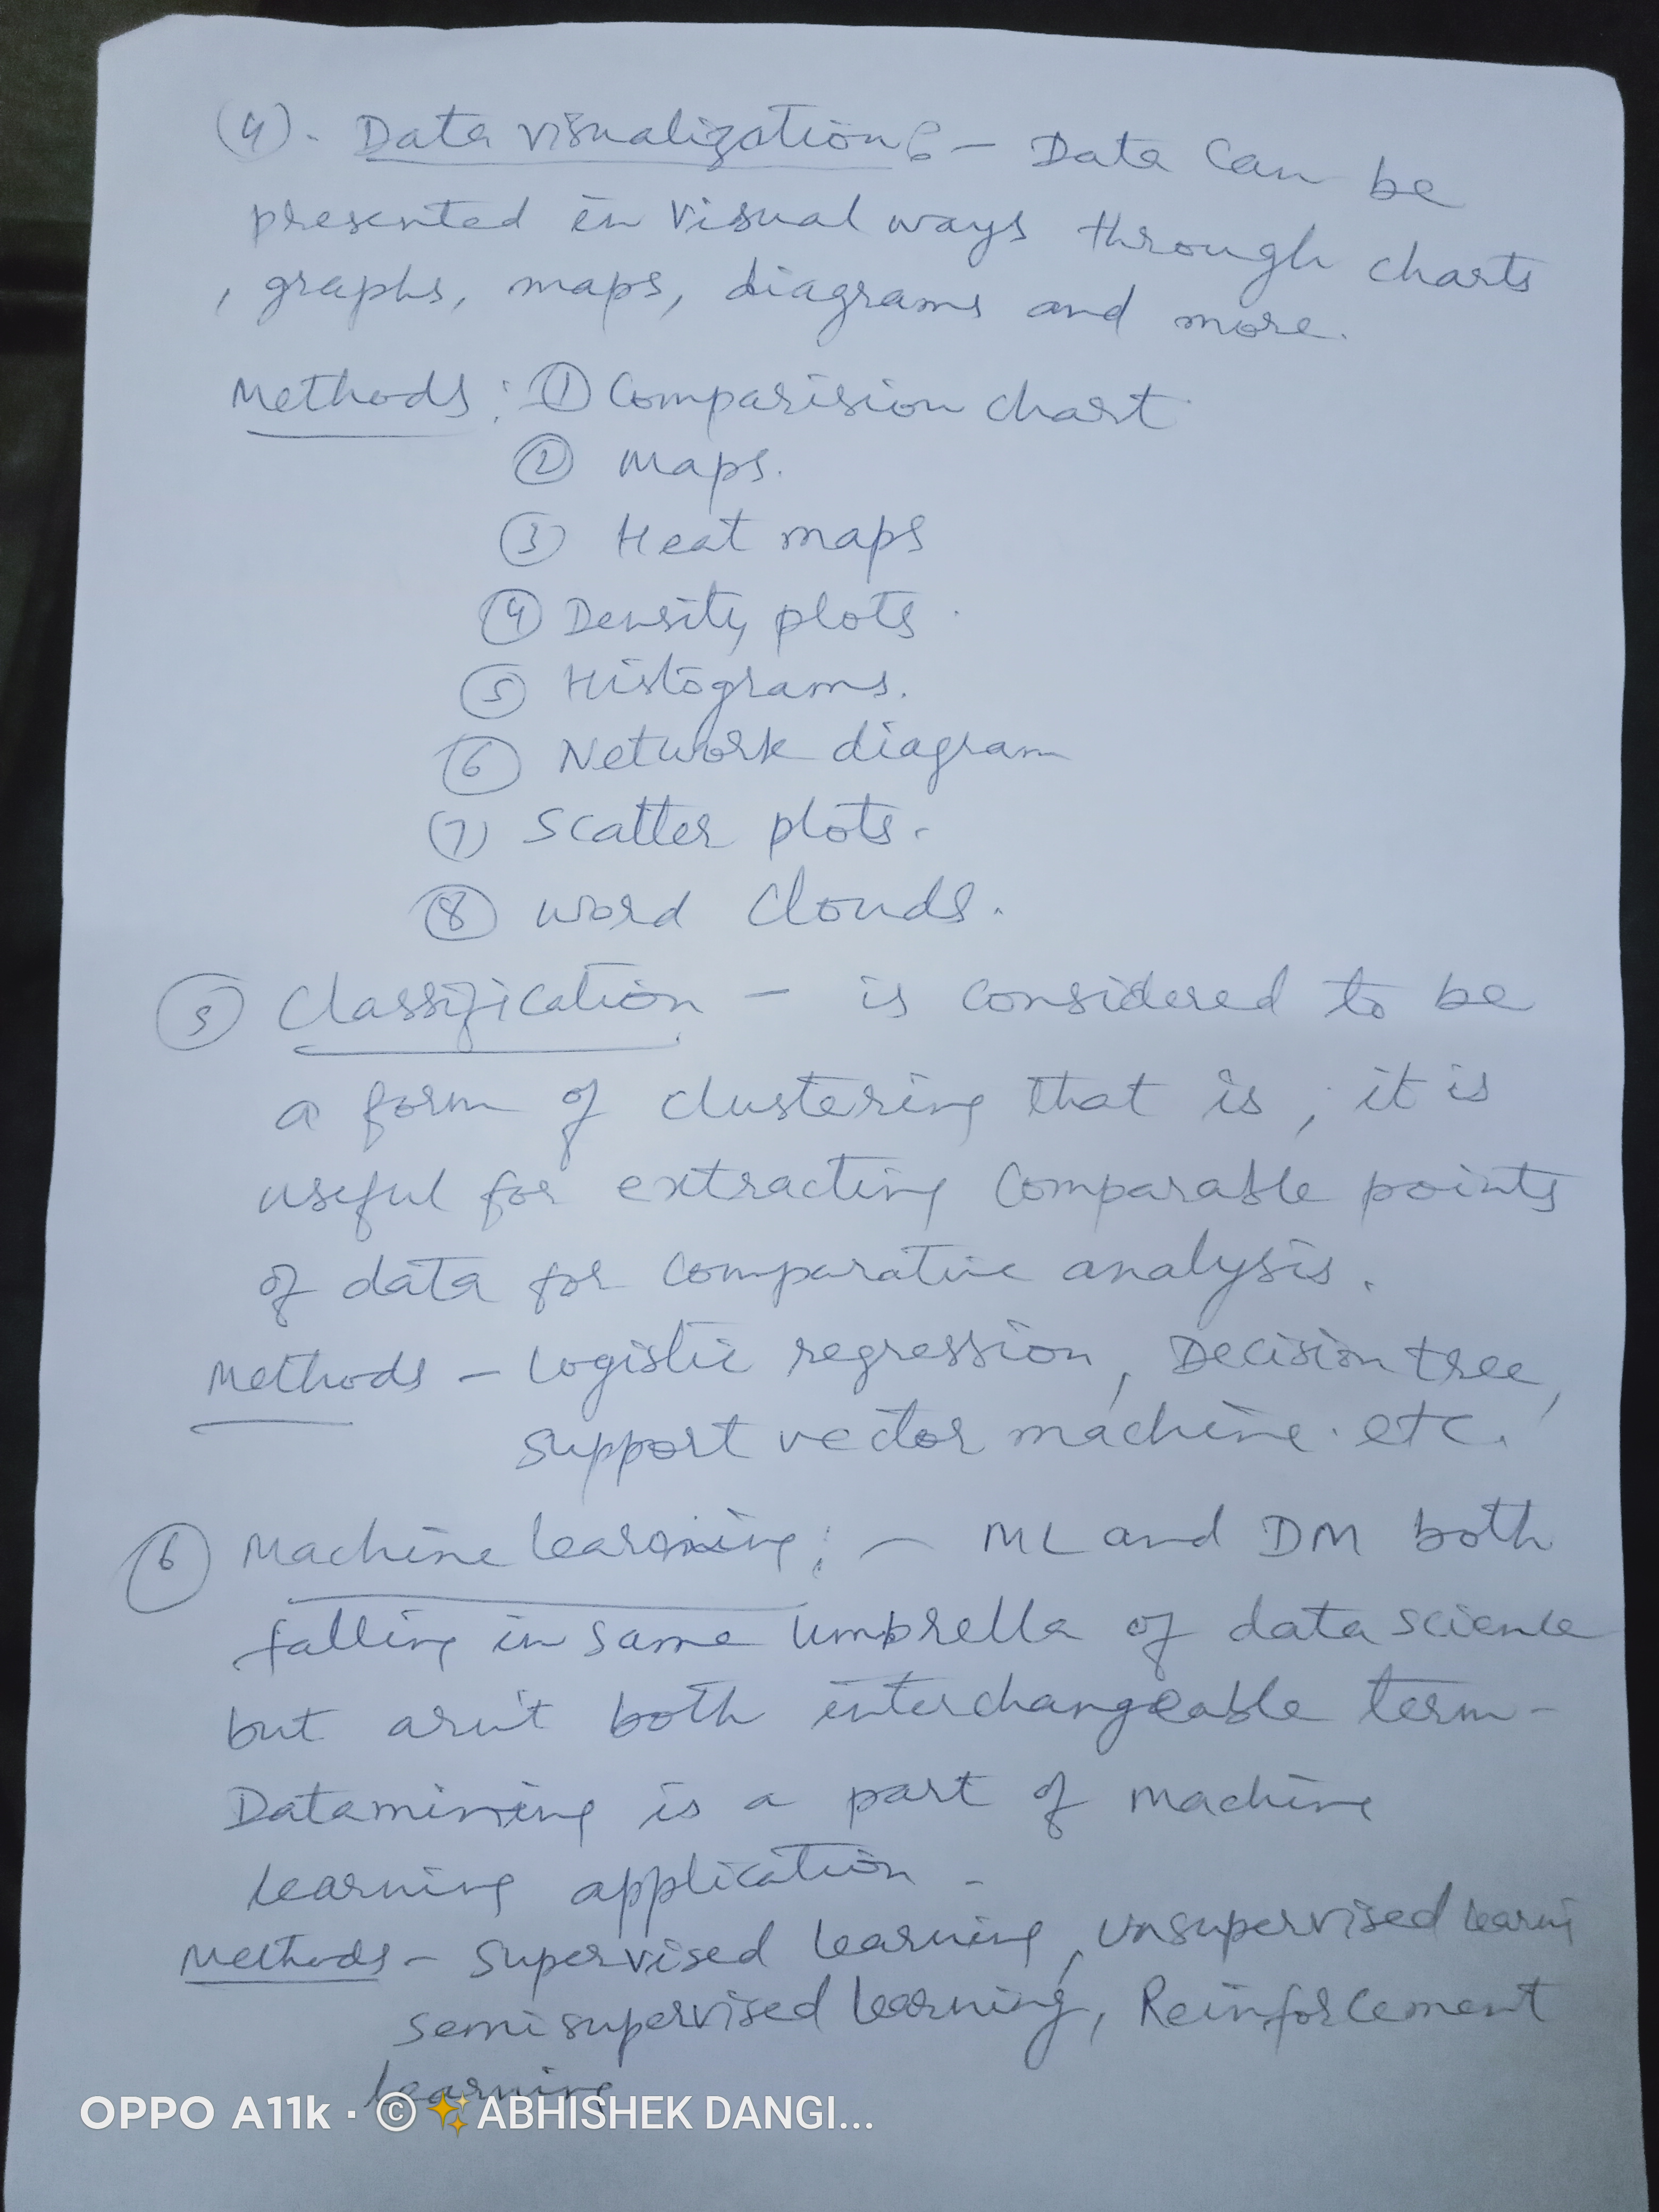 (4). Data visualization :- Data can be
presented in visual ways through charts
, graphs, maps, diagrams and more.
Methods : ① Comparision chart
② Maps.
③ Heat maps
④ Density plots.
⑤ Histograms.
⑥ Network diagram
(7) Scatter plots.
⑧ word clouds.
⑤ Classification - is considered to be
a form of clustering that is, it is
useful for extracting comparable points
of data for comparative analysis.
Methods - Logistic regression, Decision tree,
support vector machine. etc.
⑥ Machine learning: - ML and DM both
falling in same umbrella of data science
but arn't both interchangeable term -
Datamining is a part of machine
learning application -
Methods - Supervised learning, Unsupervised learni
semi supervised learning, Reinforcement
learning
OPPO A11k · © ✨ABHISHEK DANGI...